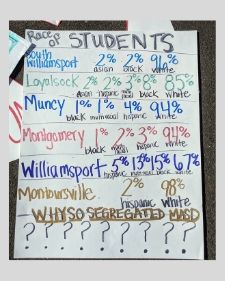 Races of STUDENTS
South Williamsport 2% 2% 96%
asian black white
Loyalsock 2% 2% 3% 8% 85%
asian hispanic multi racial black white
Muncy 1% 1% 4% 94%
black multiracial hispanic white
Montgomery 1% 2% 3% 94%
black hispanic white
Williamsport 5% 13% 15% 67%
hispanic multiracial black white
Montoursville 2% 98%
hispanic white
WHY SO SEGREGATED MASD
? ? ? ? ? ? ? ?